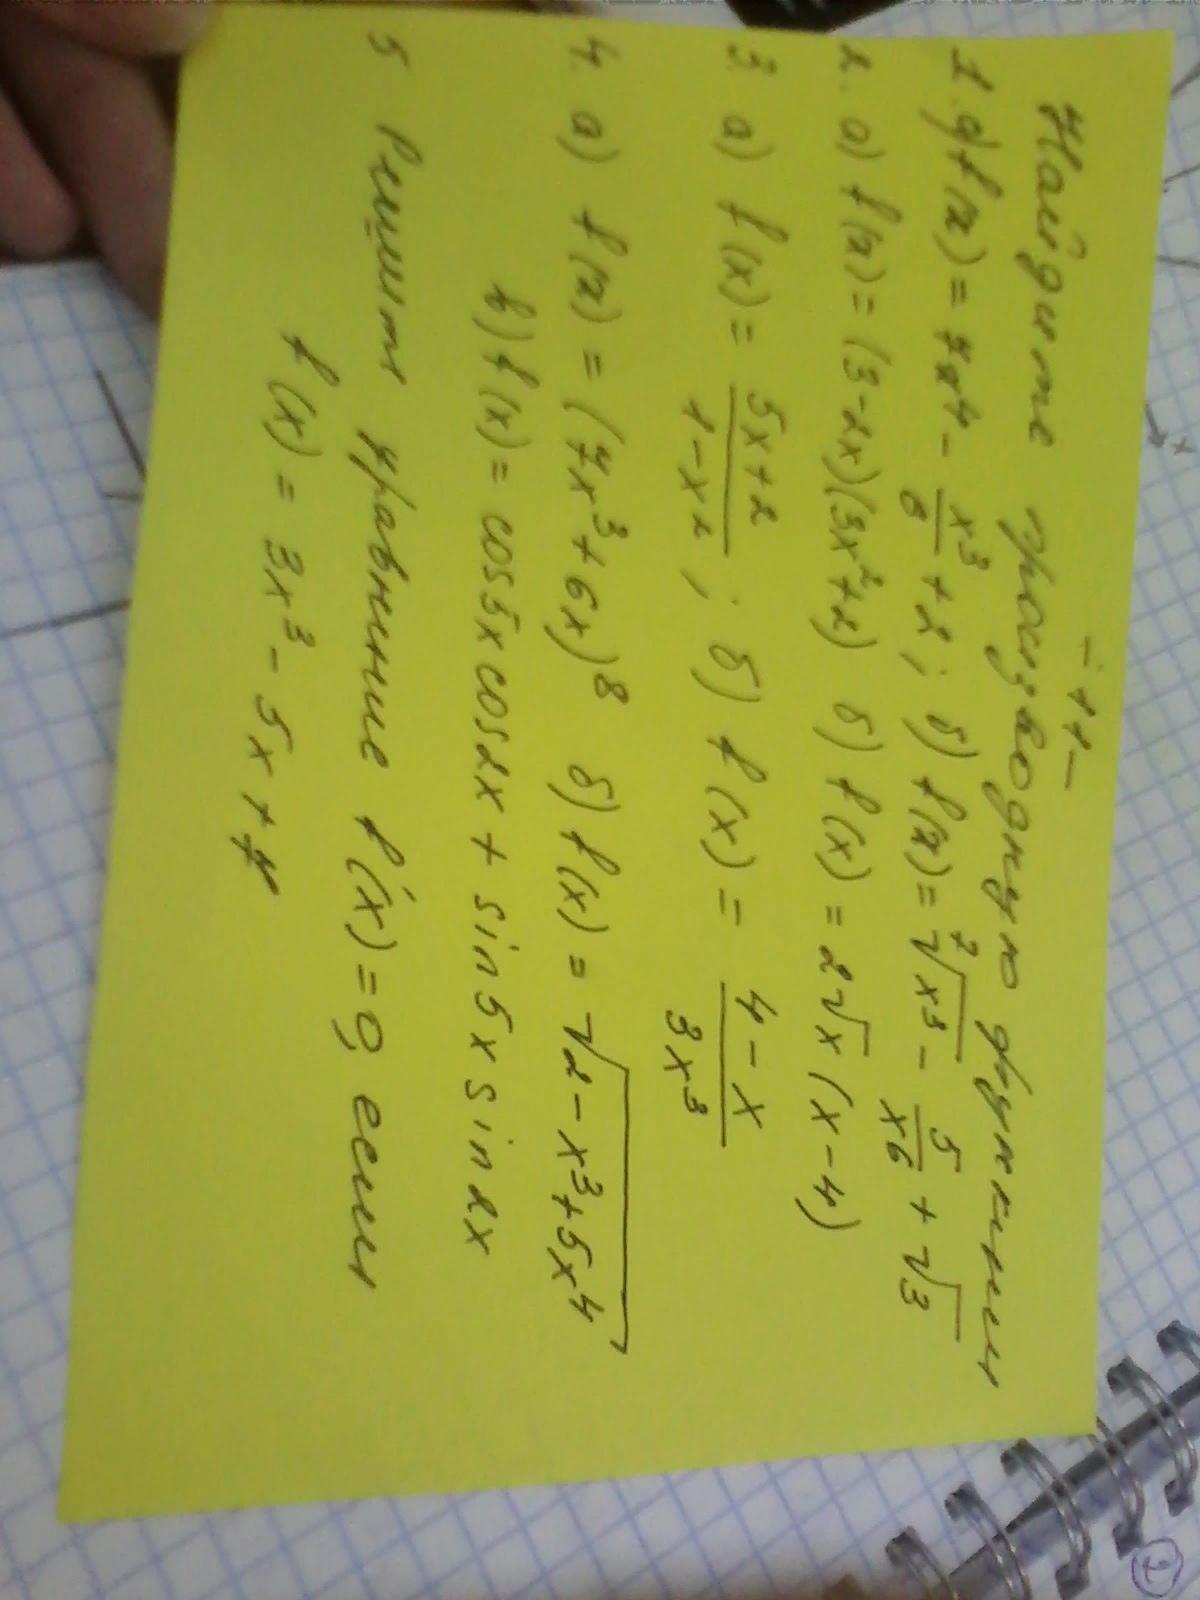 - 11 -
Найдите производную функции
1. а) f(x) = 7x⁴ - x³/8 + 2; б) f(x) = ⁷√x³ - 5/x⁶ + √3
2. а) f(x) = (3-2x)(3x²+2) б) f(x) = 2√x (x-4)
3. а) f(x) = (5x+2)/(1-x²); б) f(x) = (4-x)/(3x³)
4. а) f(x) = (7x³+6x)⁸ б) f(x) = √(2-x³+5x⁴)
в) f(x) = cos5x cos2x + sin5x sin2x
5 Решить уравнение f'(x)=0 если
f(x) = 3x³ - 5x + 4
2